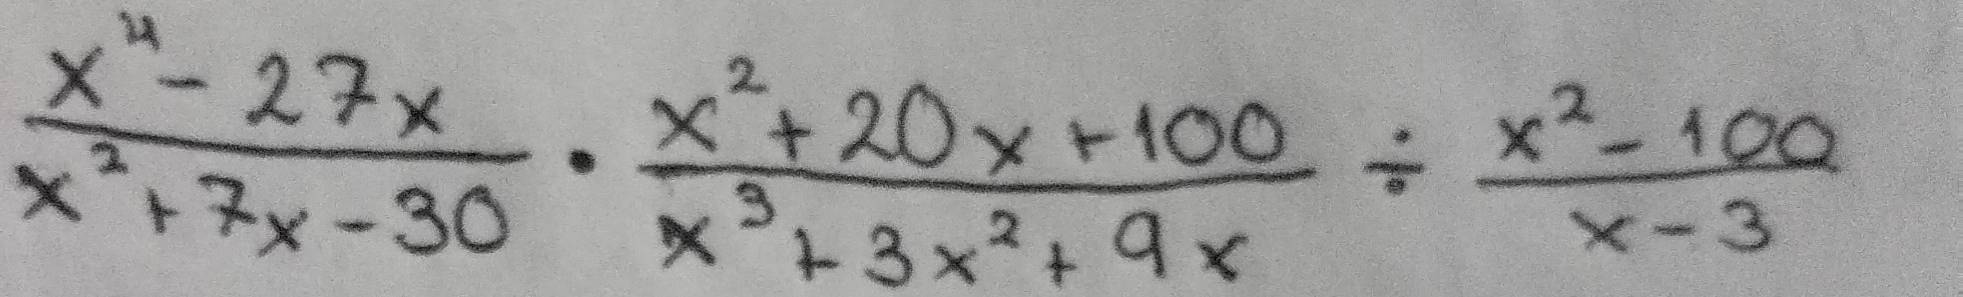 \frac{x^4 - 27x}{x^2 + 7x - 30} \cdot \frac{x^2 + 20x + 100}{x^3 + 3x^2 + 9x} \div \frac{x^2 - 100}{x - 3}